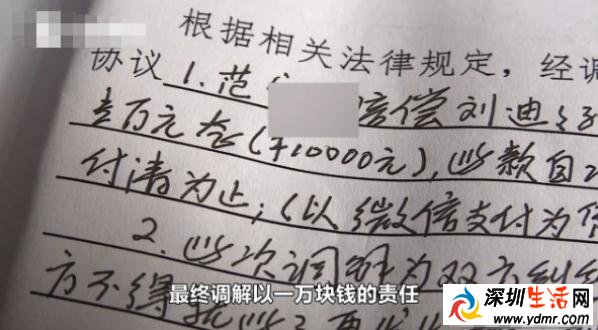 根据相关法律规定，经调
协议 1.范 赔偿刘迪
壹万元整(￥10000元),此款自
付清为止;(以微信支付为
2.此次调解为双方纠纷
方不得
最终调解以一万块钱的责任
深圳生活网
www.ydmr.com